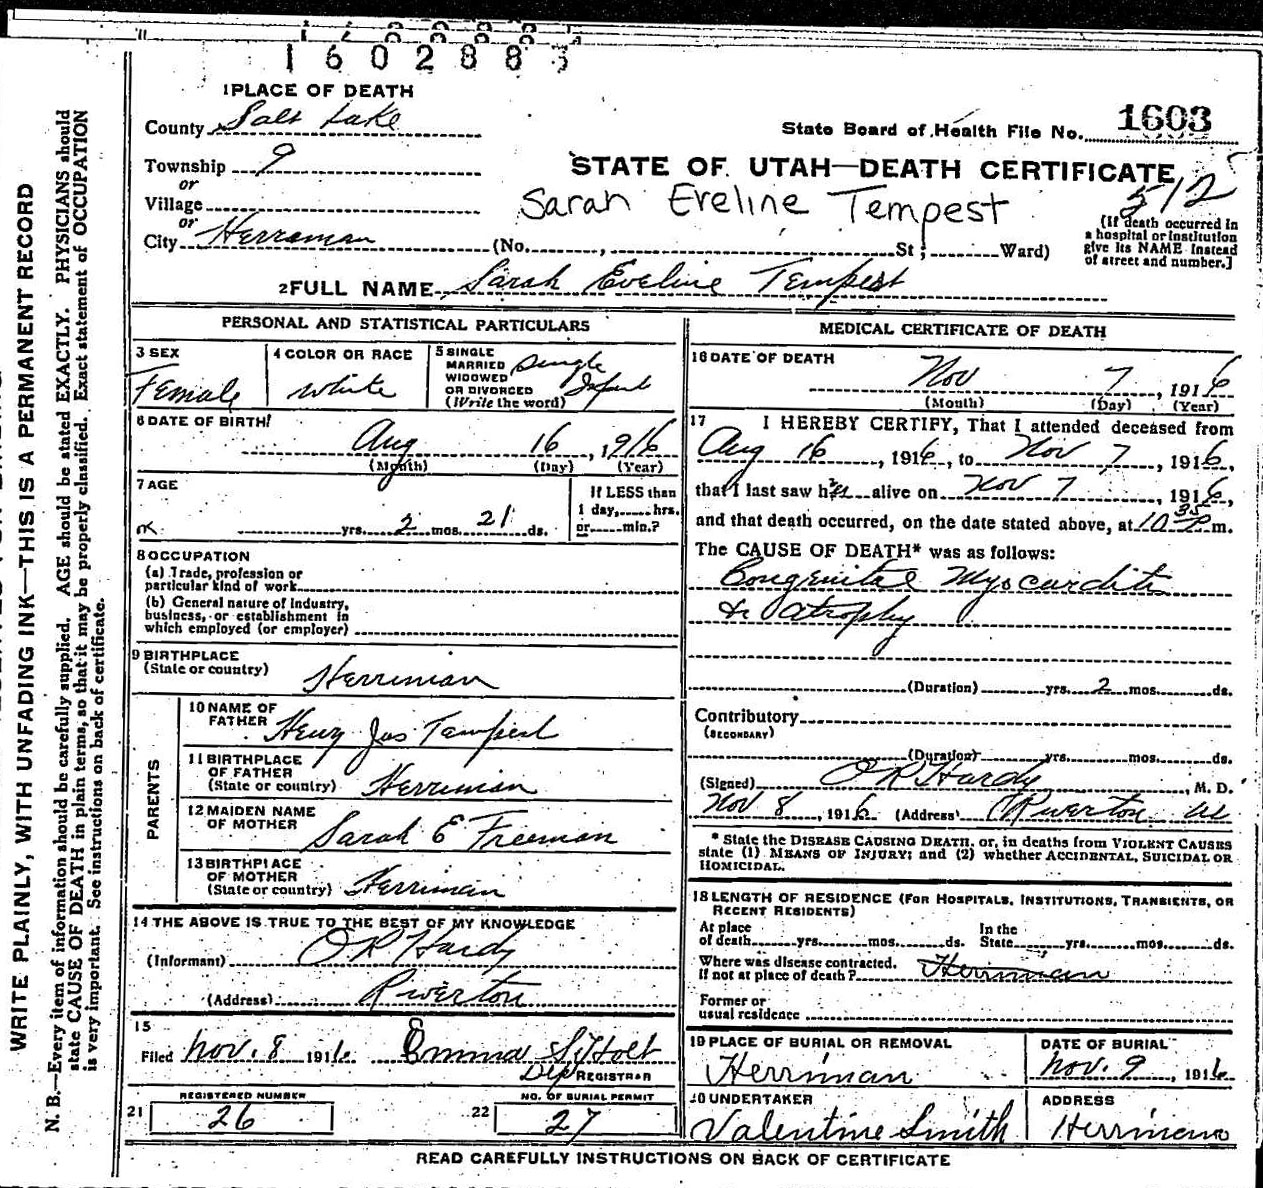 1602883
1 PLACE OF DEATH
County Salt Lake
State Board of Health File No. 1603
Township 9
or
STATE OF UTAH—DEATH CERTIFICATE
Village
or
Sarah Eveline Tempest
512
City Herriman (No. , St; Ward)
(If death occurred in
a hospital or institution
give its NAME instead
of street and number.]
2 FULL NAME Sarah Eveline Tempest
PERSONAL AND STATISTICAL PARTICULARS
3 SEX
Female
4 COLOR OR RACE
White
5 SINGLE
MARRIED
WIDOWED
OR DIVORCED
(Write the word)
Single
Infant
6 DATE OF BIRTH
Aug 16, 1916
(Month) (Day) (Year)
7 AGE
yrs. 2 mos. 21 ds.
If LESS than
1 day, hrs.
or min.?
8 OCCUPATION
(a) Trade, profession or
particular kind of work
(b) General nature of industry,
business, or establishment in
which employed (or employer)
9 BIRTHPLACE
(State or country) Herriman
PARENTS
10 NAME OF
FATHER Henry Jas Tempest
11 BIRTHPLACE
OF FATHER
(State or country) Herriman
12 MAIDEN NAME
OF MOTHER Sarah E Freeman
13 BIRTHPLACE
OF MOTHER
(State or country) Herriman
14 THE ABOVE IS TRUE TO THE BEST OF MY KNOWLEDGE
(Informant) O R Hardy
(Address) Riverton
15
Filed Nov. 8 1916 Emma S. Holt
Dep REGISTRAR
REGISTERED NUMBER
21 26
NO. OF BURIAL PERMIT
22 27
MEDICAL CERTIFICATE OF DEATH
16 DATE OF DEATH
Nov 7, 1916
(Month) (Day) (Year)
17 I HEREBY CERTIFY, That I attended deceased from
Aug 16, 1916, to Nov 7, 1916,
that I last saw her alive on Nov 7, 1916,
and that death occurred, on the date stated above, at 10 35 P m.
The CAUSE OF DEATH* was as follows:
Congenital Myocarditis
& atrophy
(Duration) yrs. 2 mos. ds.
Contributory
(SECONDARY)
(Duration) yrs. mos. ds.
(Signed) O R Hardy, M. D.
Nov 8, 1916 (Address) Riverton Ut
* State the DISEASE CAUSING DEATH, or, in deaths from VIOLENT CAUSES
state (1) MEANS OF INJURY; and (2) whether ACCIDENTAL, SUICIDAL OR
HOMICIDAL.
18 LENGTH OF RESIDENCE (FOR HOSPITALS, INSTITUTIONS, TRANSIENTS, OR
RECENT RESIDENTS)
At place In the
of death yrs. mos. ds. State yrs. mos. ds.
Where was disease contracted,
if not at place of death? Herriman
Former or
usual residence
19 PLACE OF BURIAL OR REMOVAL
Herriman
DATE OF BURIAL
Nov. 9, 1916
20 UNDERTAKER
Valentine Smith
ADDRESS
Herriman
READ CAREFULLY INSTRUCTIONS ON BACK OF CERTIFICATE
WRITE PLAINLY, WITH UNFADING INK—THIS IS A PERMANENT RECORD
N. B.—Every item of information should be carefully supplied. AGE should be stated EXACTLY. PHYSICIANS should
state CAUSE OF DEATH in plain terms, so that it may be properly classified. Exact statement of OCCUPATION
is very important. See instructions on back of certificate.